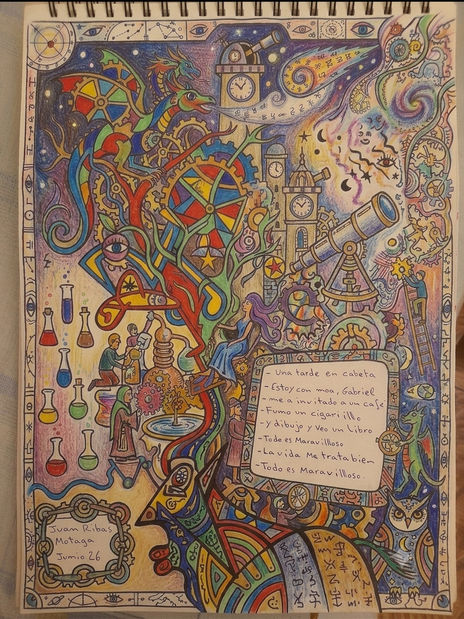 - Una tarde en cabeta
- Estoy con moa, Gabriel
- me a invitado a un cafe
- Fumo un cigarillo
y dibujo y veo un Libro
- Todo es Maravilloso
- La vida Me trata bien
- Todo es Maravilloso.
Juan Ribas
Motaga
Junio 26